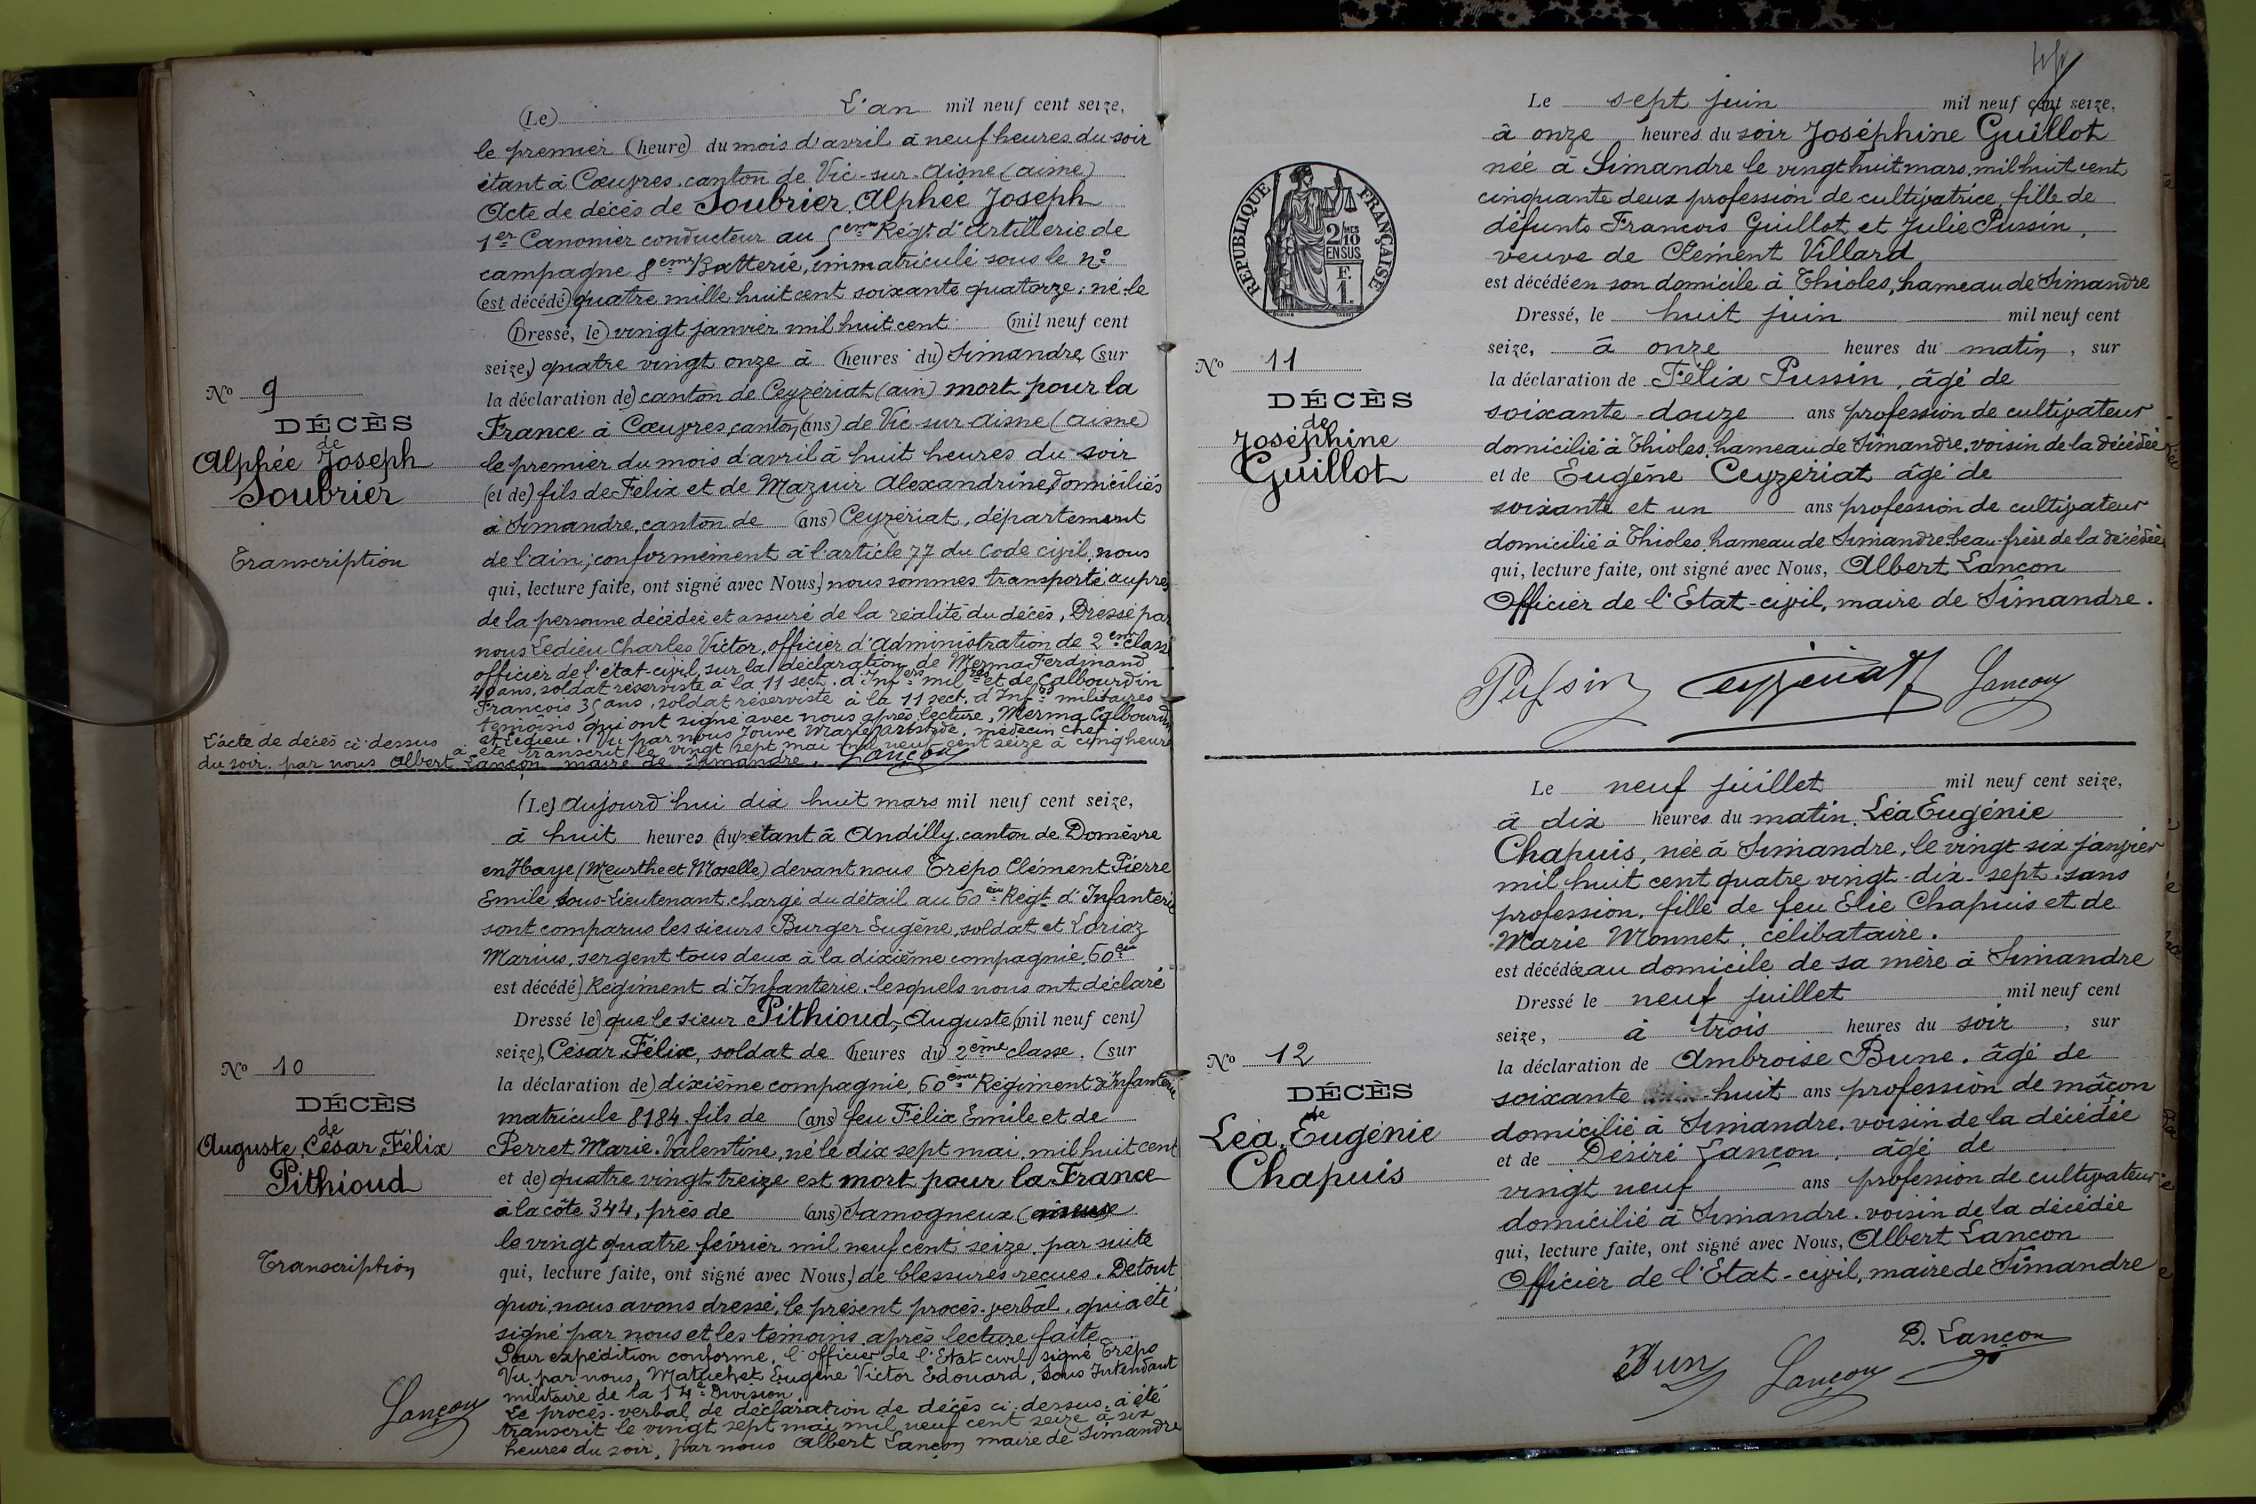 (Le) L'an mil neuf cent seize,
le premier (heure) du mois d'avril à neuf heures du soir
étant à Cœuvres, canton de Vic-sur-Aisne (aisne)
Acte de décès de Soubrier, Alphée Joseph
1er Canonier conducteur au 5eme Régt d'Artillerie de
campagne 8eme Batterie, immatriculé sous le no
(est décédé) quatre mille huit cent soixante quatorze; né le
(Dressé, le) vingt janvier mil huit cent (mil neuf cent
seize,) quatre vingt onze à (heures du) Simandre (sur
la déclaration de) canton de Ceyzériat (ain) mort pour la
France à Cœuvres, canton (ans) de Vic-sur-Aisne (aisne)
le premier du mois d'avril à huit heures du soir
(et de) fils de Felix et de Mazuir Alexandrine, domiciliés
à Simandre, canton de (ans) Ceyzériat, département
de l'ain; conformément à l'article 77 du Code civil, nous
qui, lecture faite, ont signé avec Nous,) nous sommes transporté auprès
de la personne décédée et assuré de la réalité du décès, Dressé par
nous Ledieu Charles Victor, officier d'administration de 2eme classe
officier de l'état-civil, sur la déclaration de Merma Ferdinand
40 ans, soldat réserviste à la 11 sect. d'Infers milres et de Calbourdin
François 35 ans, soldat réserviste à la 11 sect. d'Infrs militaires
témoins qui ont signé avec nous après lecture, Merma Calbourdin
et Ledieu. Vu par nous Jouve Marie Aristide, médecin chef
L'acte de décès ci-dessus a été transcrit le vingt sept mai mil neuf cent seize à cinq heures
du soir, par nous Albert Lançon maire de Simandre. Lançon
No 9
DÉCÈS
de
Alphée Joseph
Soubrier
Transcription
(Le) Aujourd'hui dix huit mars mil neuf cent seize,
à huit heures (du) étant à Andilly, canton de Domèvre
en Haye (Meurthe et Moselle) devant nous Trépo Clément Pierre
Emile Sous-Lieutenant chargé du détail au 60ème Régt d'Infanterie
sont comparus les sieurs Burger Eugène, soldat et Lorioz
Marius, sergent tous deux à la dixième compagnie, 60em
est décédé) Régiment d'Infanterie, lesquels nous ont déclaré
Dressé le) que le sieur Pithioud, Auguste (mil neuf cent)
seize), César, Félix, soldat de (heures du) 2ème classe, (sur
la déclaration de) dixième compagnie, 60ème Régiment d'Infanterie
matricule 8184, fils de (ans) feu Félix Emile et de
Perret Marie-Valentine, né le dix sept mai, mil huit cent
et de) quatre vingt treize est mort pour la France
à la côte 344, près de (ans) Samogneux (meuse)
le vingt quatre février mil neuf cent seize, par suite
qui, lecture faite, ont signé avec Nous,) de blessures reçues. De tout
quoi, nous avons dressé, le présent procès-verbal, qui a été
signé par nous et les témoins après lecture faite
Pour expédition conforme, l'officier de l'Etat civil, signé Trépo
Vu par nous, Matuchet Eugène Victor Edouard, Sous Intendant
militaire de la 14e Division
Le procès-verbal de déclaration de décès ci-dessus, a été
transcrit le vingt sept mai mil neuf cent seize à six
heures du soir, par nous Albert Lançon maire de Simandre
Lançon
No 10
DÉCÈS
de
Auguste, César, Félix
Pithioud
Transcription
Le sept juin mil neuf cent seize,
à onze heures du soir Joséphine Guillot
née à Simandre le vingt huit mars, mil huit cent
cinquante deux profession de cultivatrice, fille de
défunts Francois Guillot et Julie Pussin,
veuve de Clément Villard
est décédée en son domicile à Thioles, hameau de Simandre
Dressé, le huit juin mil neuf cent
seize, à onze heures du matin, sur
la déclaration de Félix Pussin, âgé de
soixante-douze ans profession de cultivateur
domicilié à Thioles, hameau de Simandre, voisin de la décédée
et de Eugène Ceyzériat âgé de
soixante et un ans profession de cultivateur
domicilié à Thioles, hameau de Simandre, beau-frère de la décédée
qui, lecture faite, ont signé avec Nous, Albert Lancon
Officier de l'Etat-civil, maire de Simandre.
Pussin Ceyzeriat Lançon
RÉPUBLIQUE FRANÇAISE
2/10
EN SUS
F.
1.
No 11
DÉCÈS
de
Joséphine
Guillot
Le neuf juillet mil neuf cent seize,
à dix heures du matin, Léa Eugénie
Chapuis, née à Simandre, le vingt six janvier
mil huit cent quatre vingt-dix-sept, sans
profession, fille de feu Elie Chapuis et de
Marie Monnet, célibataire.
est décédée au domicile de sa mère à Simandre
Dressé le neuf juillet mil neuf cent
seize, à trois heures du soir, sur
la déclaration de Ambroise Bune, âgé de
soixante huit ans profession de mâçon
domicilié à Simandre, voisin de la décédée
et de Désiré Lancon, âgé de
vingt neuf ans profession de cultivateur
domicilié à Simandre, voisin de la décédée
qui, lecture faite, ont signé avec Nous, Albert Lancon
Officier de l'Etat-civil, maire de Simandre
D. Lançon
Lançon
No 12
DÉCÈS
de
Léa, Eugénie
Chapuis